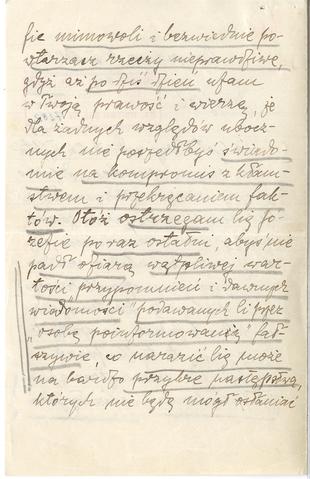 fie mimowoli i bezwiednie po-
wtarzasz rzeczy nieprawdziwe,
gdyż aż po dziś dzień ufam
w Twoją prawość i wierzę, że
dla żadnych względów ubocz-
nych nie poszedłbyś świado-
mie na kompromis z kłam-
stwem i przekręcaniem fak-
tów. Otóż ostrzegam Cię Jó-
zefie po raz ostatni, abyś nie
padł ofiarą wątpliwej war-
tości "przypomnień i dawnych
wiadomości" podawanych Ci przez
"osobę poinformowaną" fał-
szywie, co narazić Cię może
na bardzo przykre następstwa,
których nie będę mógł osłaniać